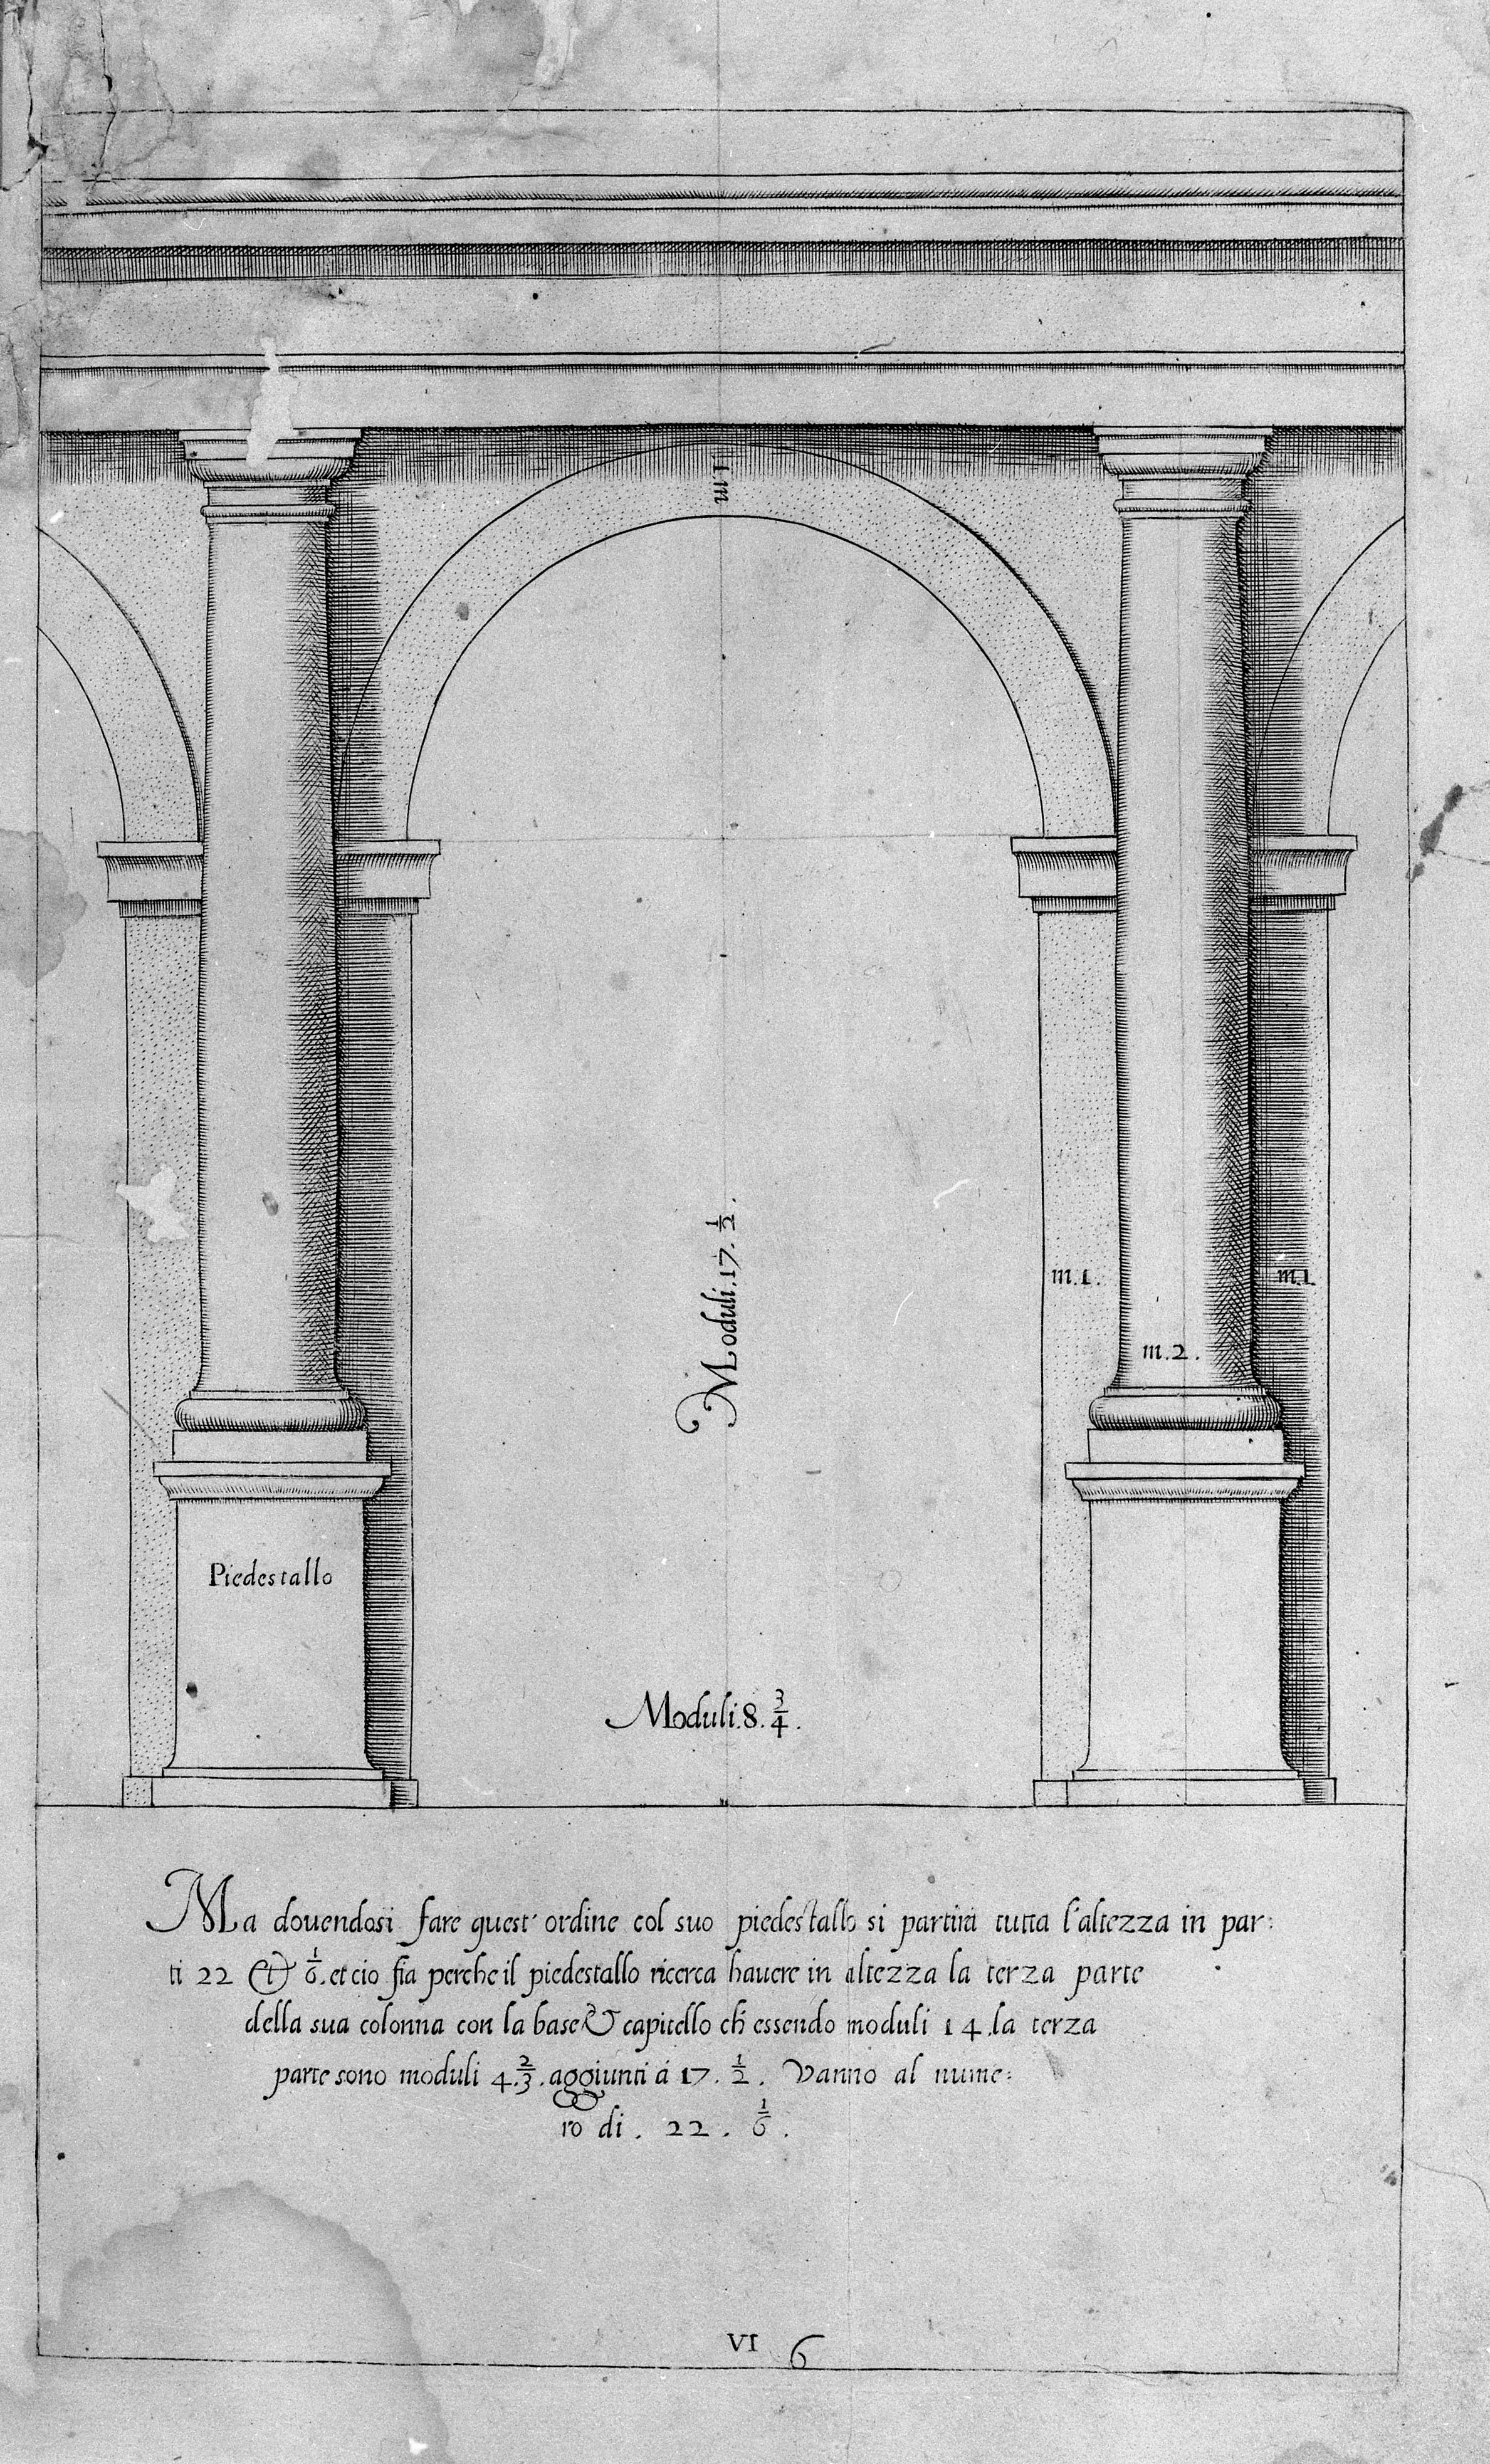 1.m
Moduli.17.½.
m.1.
m.1.
m.2.
Piedestallo
Moduli.8.¾.
Ma douendosi fare quest' ordine col suo piedestallo si partirà tutta l'altezza in par:
ti 22 et ⅙. et cio fia perche il piedestallo ricerca hauere in altezza la terza parte
della sua colonna con la base & capitello ch' essendo moduli 14. la terza
parte sono moduli 4.⅔. aggiunti à 17.½. Vanno al nume:
ro di. 22. ⅙.
VI 6